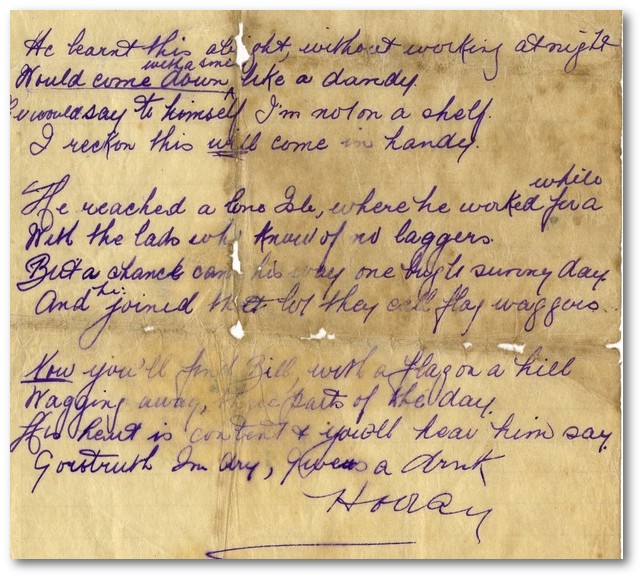 He learnt this alright, without working at night
Would come down with a smile like a dandy.
He would say to himself I'm not on a shelf.
I reckon this will come in handy.
He reached a lone Isle, where he worked for a while
With the lads who know of no laggers.
But a chance came his way one bright sunny day.
And he joined that lot they call flag waggers.
Now you'll find Bill with a flag on a hill
Wagging away, parts of the day.
His heart is content & you'll hear him say.
Gorstruth Im dry, give us a drink
Hooray